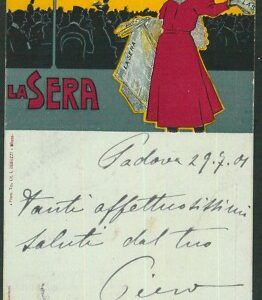 LA SERA
LA SERA
Padova 29.7.01
Tanti affettuosissimi
saluti dal tuo
Piero